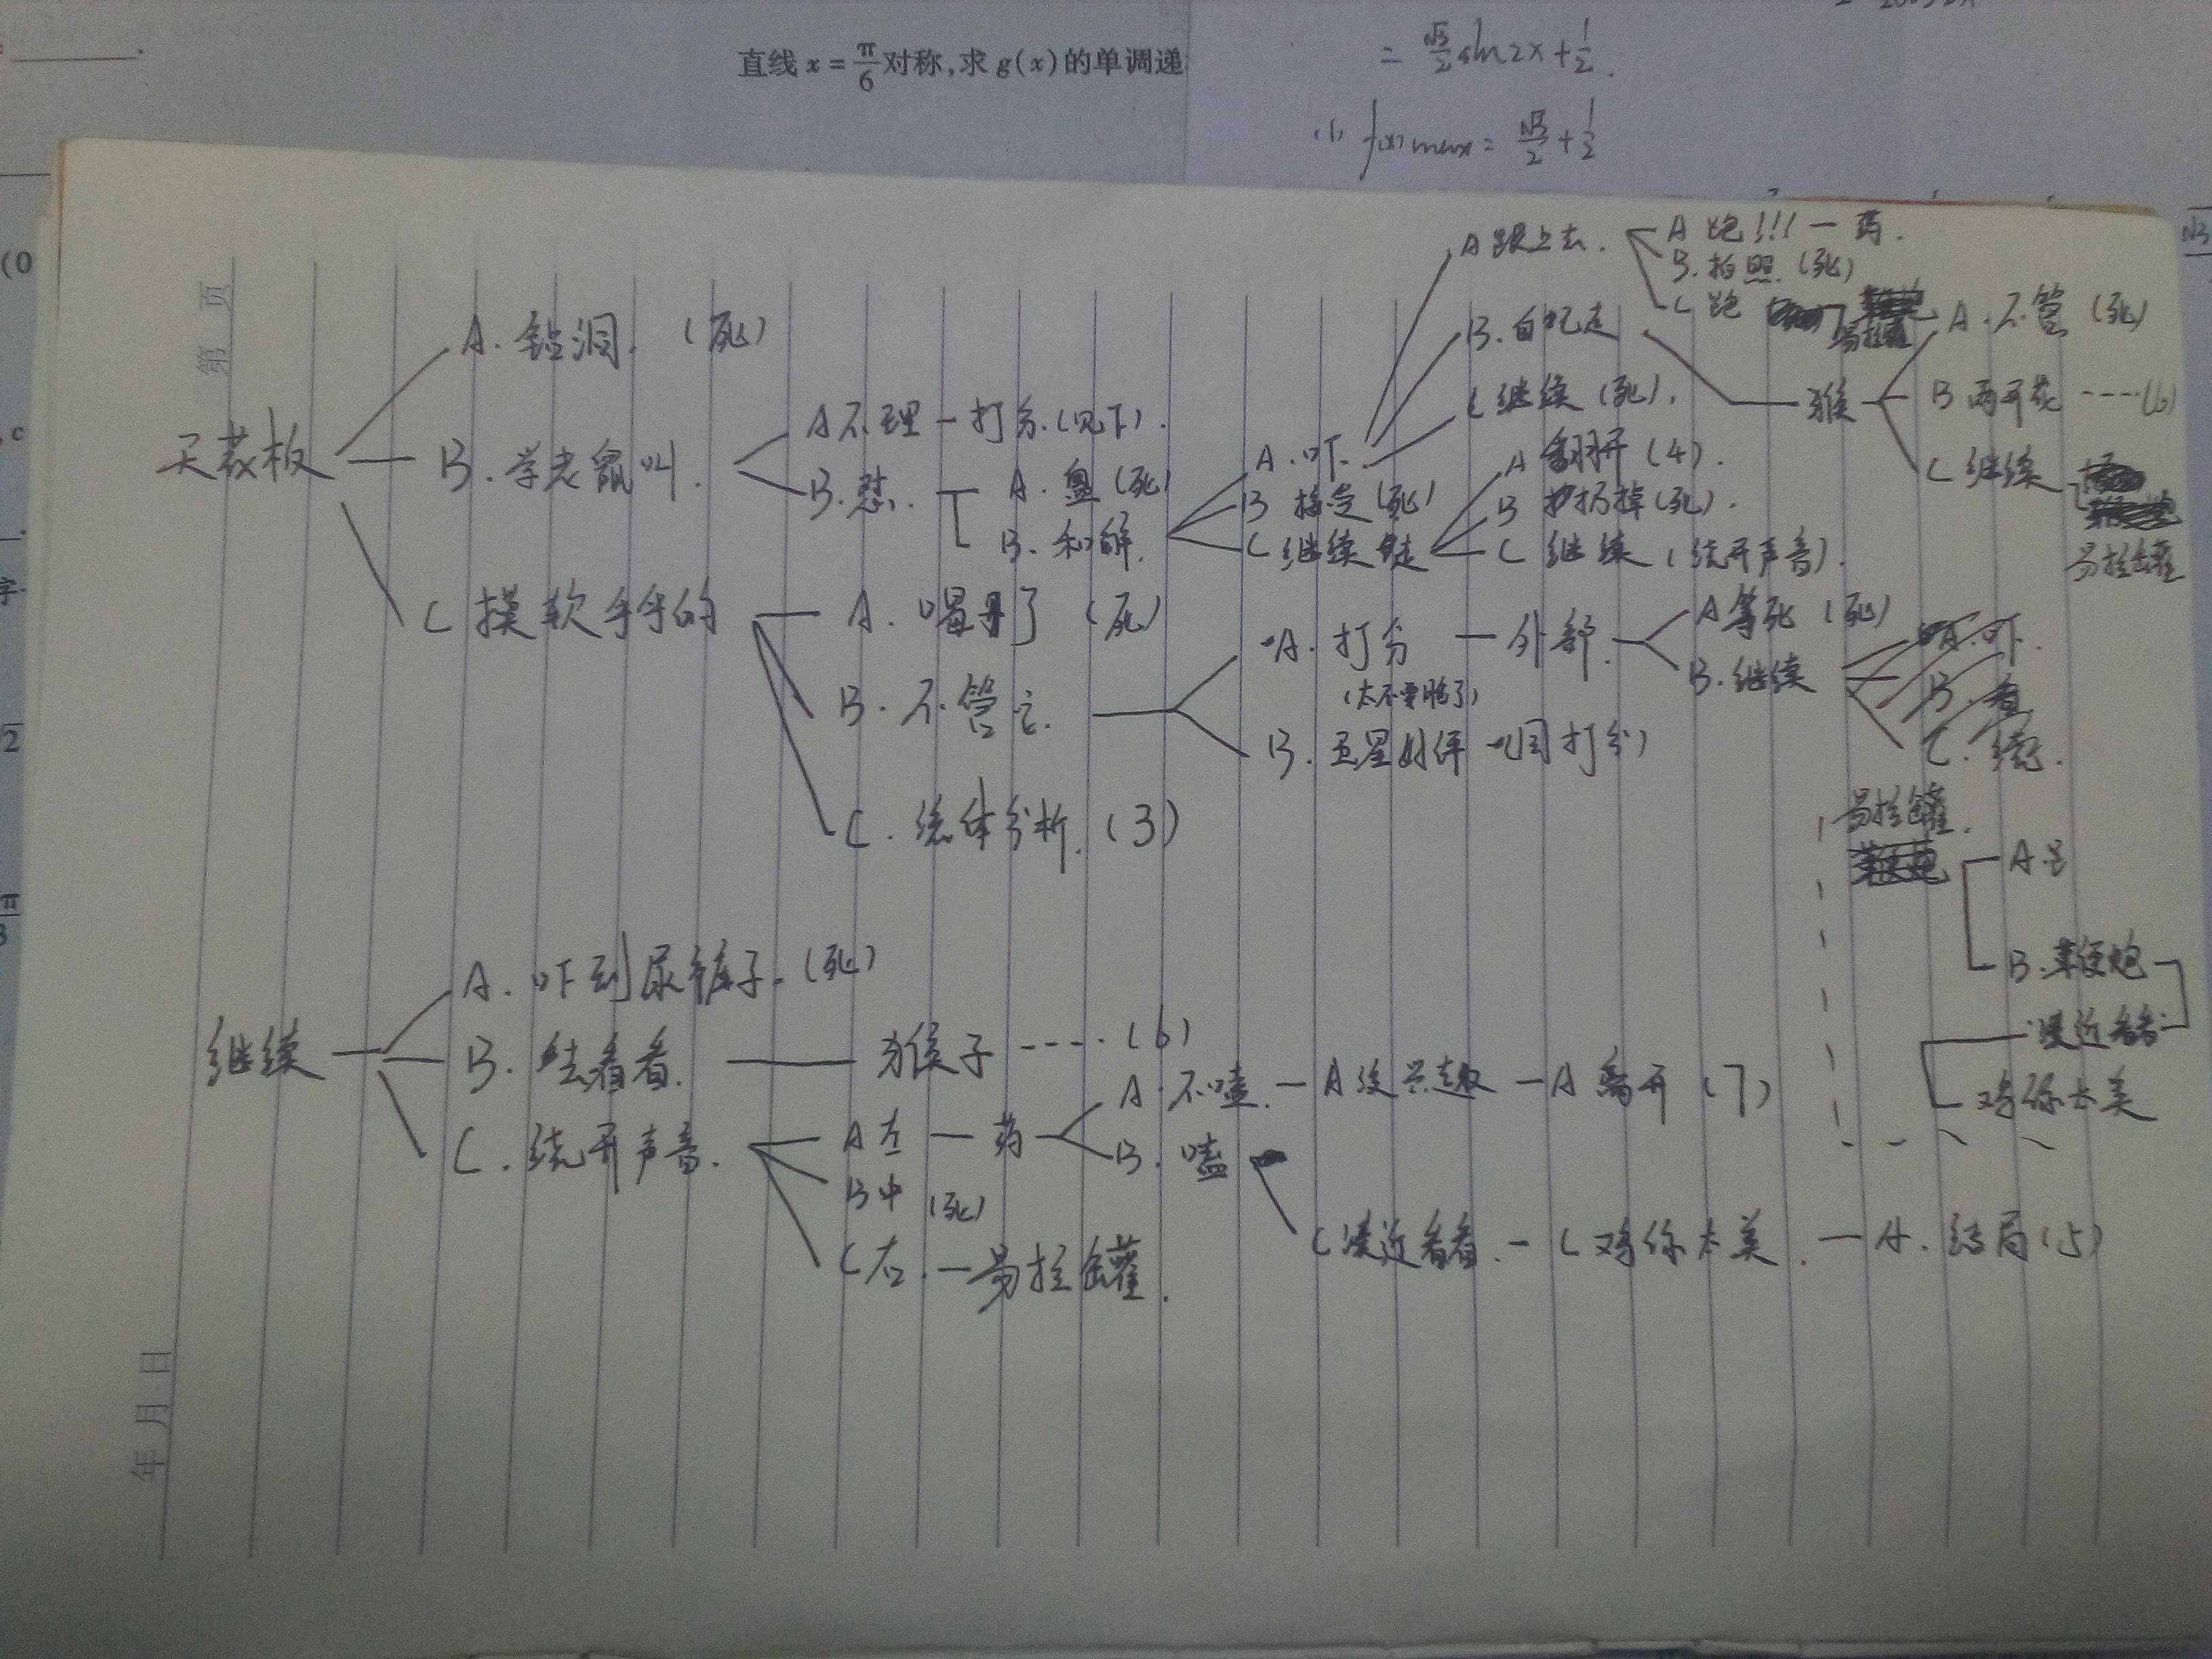 直线 x = π/6 对称,求 g(x) 的单调递
= √3/2 sin2x + 1/2.
(1) f(x)max = √3/2 + 1/2
(0
第 页
A 跟上去.
A 跑!!! — 药.
B. 拍照. (死)
C 跑 易拉罐
A. 钻洞. (死)
B. 自己走
A. 不管 (死)
天花板
B. 学老鼠叫.
A 不理 — 打分. (见下).
C 继续 (死).
猴
B 两开花 ----(6)
B. 怼.
A. 盘 (死)
A. 吓.
A 翻开 (4).
C 继续
易拉罐
B. 和解.
B 接走 (死)
B 扔掉 (死).
C 继续走
C 继续 (绕开声音).
C 摸软乎乎的
A. 喝了 (死)
A. 打分 — 外部.
(太不要脸了)
A 等死 (死)
B. 继续
A. 吓.
B. 看
C. 绕.
B. 不管它.
B. 五星好评 — (同打分)
C. 总体分析. (3)
易拉罐.
A. 是
B. 苯便炮
凑近看看
鸡你太美
继续
A. 吓到尿裤子. (死)
B. 去看看.
猴子 ---- (6)
C. 绕开声音.
A 左 — 药
A. 不嗑. — A 没兴趣 — A 离开 (7)
B. 嗑
B 中 (死)
C 凑近看看. — C 鸡你太美. — A. 结局 (5)
C 右. — 易拉罐.
年 月 日